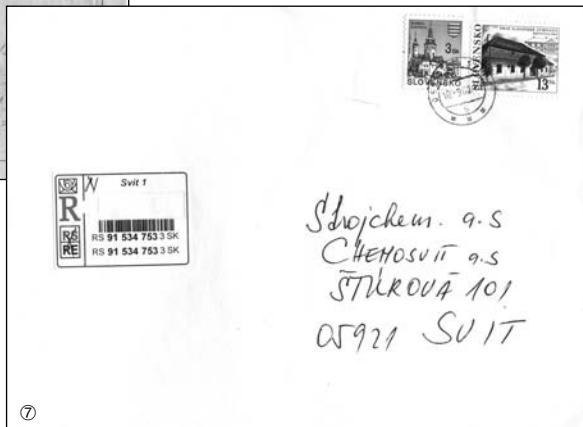 3 Sk
SLOVENSKO
SLOVENSKO
13 Sk
R
Svit 1
RS 91 534 753 3 SK
RS 91 534 753 3 SK
Strojchem. a.s
CHEMOSVIT a.s
ŠTÚROVÁ 101
05921 SVIT
⑦